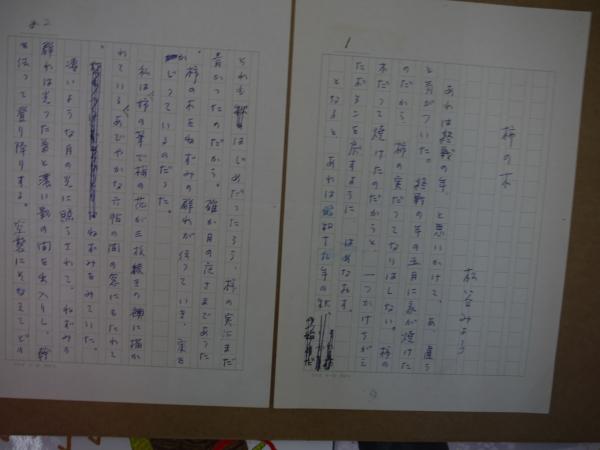 1
柿の木
松谷みよ子
あれは終戦の年、と思いかけて、あ、違う
と気がついた。終戦の年の五月に家が焼けた
のだから、柿の実だってなりはしない。柿の
木だって焼けたのだからと、一つかけちがえ
たボタンを戻すように、はめなおす。
となると、あれは昭和十九年の秋
2
それも はじめだったろう、柿の実はまだ
青かったのだから。確か月の夜さまであった
柿の木をねずみの群れが伝っていき、実を
かじっているのだった。
私は 梅の花が三枝 描か
れているあでやかな六帖の間の窓にもたれて
ねずみをみていた。
凄いような月の光に照らされて、ねずみの
群れは光った葉と濃い影の間を出入りし、幹
を伝って登り降りする。空襲にそなえてどの